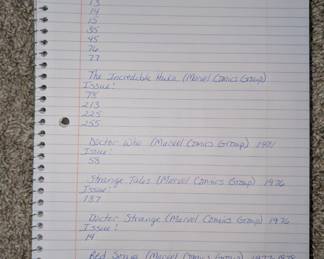 13
14
15
35
45
76
77
The Incredible Hulk (Marvel Comics Group)
Issue:
78
213
225
255
Doctor Who (Marvel Comics Group) 1981
Issue:
58
Strange Tales (Marvel Comics Group) 1976
Issue:
187
Doctor Strange (Marvel Comics Group) 1976
Issue:
14
Red Sonja (Marvel Comics Group) 1977-1978